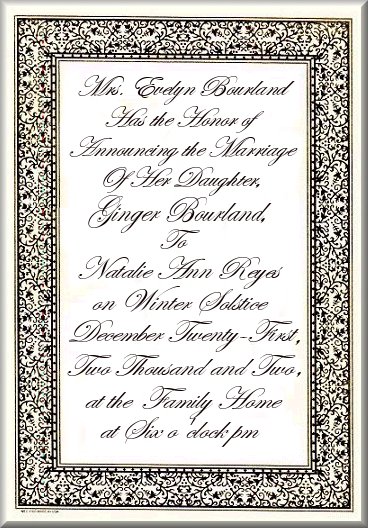 Mrs. Evelyn Bourland
Has the Honor of
Announcing the Marriage
Of Her Daughter,
Ginger Bourland,
To
Natalie Ann Reyes
on Winter Solstice
December Twenty-First,
Two Thousand and Two,
at the Family Home
at Six o'clock pm